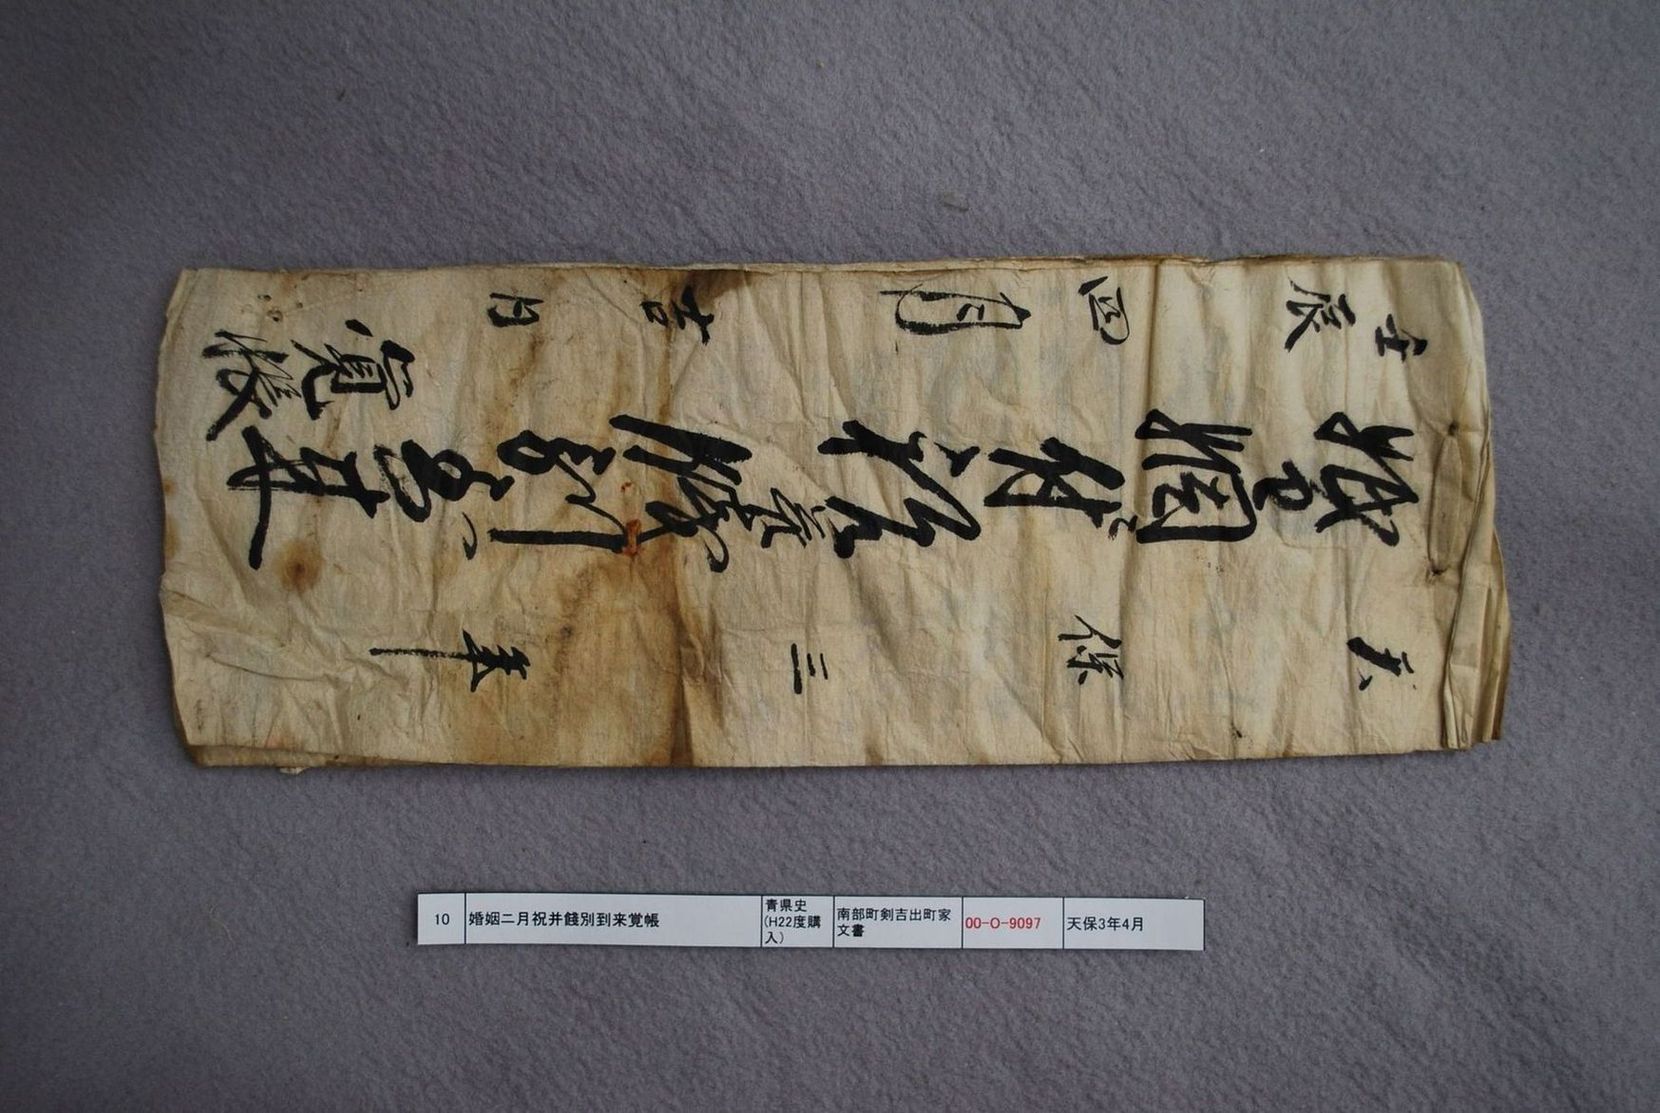 天保三年
婚姻ニ付祝并餞別到来
覚帳
壬辰四月吉日
10
婚姻二月祝并餞別到来覚帳
青県史
(H22度購
入)
南部町剣吉出町家
文書
00-O-9097
天保3年4月